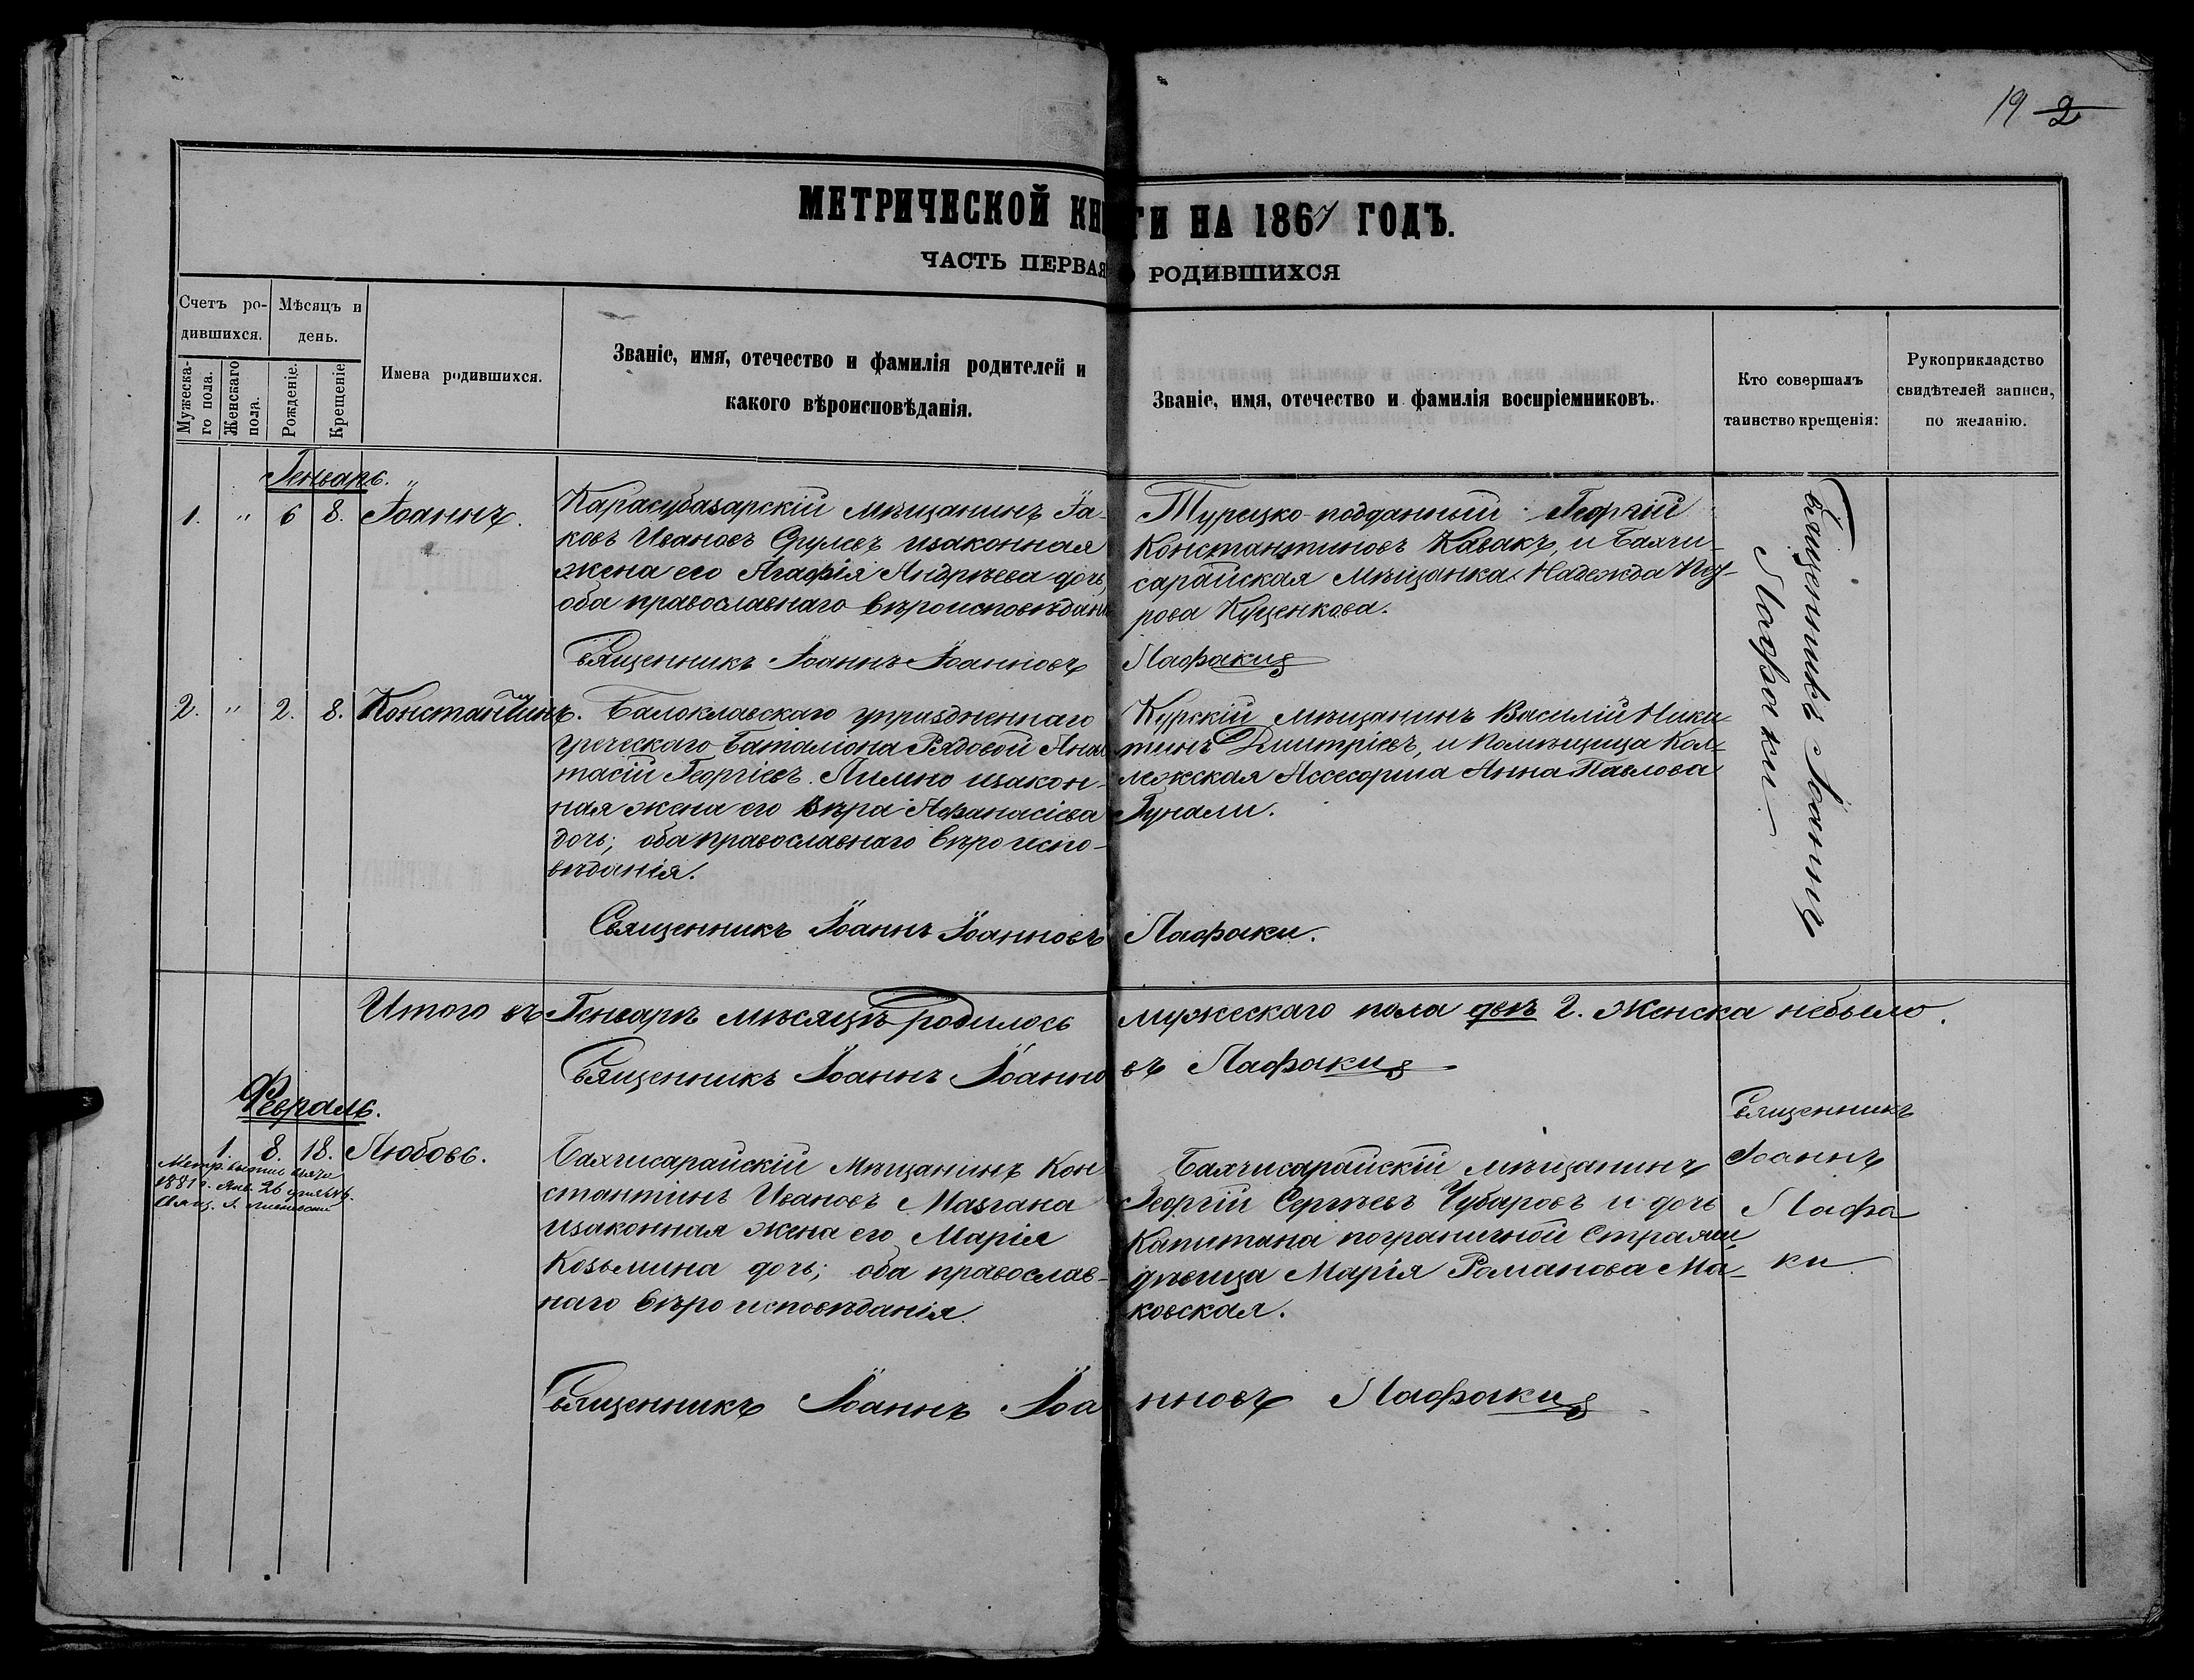 19 2
МЕТРИЧЕСКОЙ КНИГИ НА 1867 ГОДЪ.
ЧАСТЬ ПЕРВАЯ О РОДИВШИХСЯ
Счетъ ро-
дившихся.
Мужеска-
го пола.
Женскаго
пола.
Мѣсяцъ и
день.
Рожденіе.
Крещеніе
Имена родившихся.
Званіе, имя, отечество и фамилія родителей и
какого вѣроисповѣданія.
Званіе, имя, отечество и фамилія воспріемниковъ.
Кто совершалъ
таинство крещенія:
Рукоприкладство
свидѣтелей записи,
по желанію.
Генварь.
1. " 6 8. Іоаннъ.
Карасубазарскій мѣщанинъ Іа-
ковъ Ивановъ изаконная
жена его Агафія Андрѣева дочь,
оба православнаго вѣроисповѣдан
Турецко-подданный Георгій
Константиновъ Кавакъ, и Бахчи-
сарайская мѣщанка Надежда
рова Куценкова.
Священникъ Іоаннъ Іоанновъ Лафаки
Священникъ Іоаннъ
Лафаки
2. " 2. 8. Константинъ.
Балоклавскаго упраздненнаго
греческаго Баталіона Рядовой Анас
тасій Георгіевъ Лимно изакон-
ная жена его Вѣра Афанасіева
дочь; оба православнаго вѣро испо-
вѣданія.
Курскій мѣщанинъ Василій Ники-
тинъ Дмитріевъ, и помѣщица Кол-
лежская Ассесорша Анна Павлова
Гунали.
Священникъ Іоаннъ Іоанновъ Лафаки.
Итого въ Генварѣ мѣсяцѣ родилось мужескаго пола двѣ 2. Женска небыло.
Священникъ Іоаннъ Іоанновъ Лафаки
Февраль.
1. 8. 18. Любовь.
Метр.
1881 г. Янв. 26
Свящ.
Бахчисарайскій мѣщанинъ Кон
стантинъ Ивановъ Мазгана
изаконная жена его Марія
Козьмина дочь; оба православ-
наго вѣро исповѣданія.
Бахчисарайскій мѣщанинъ
Георгій Сергѣевъ Чубаровъ и дочь
Капитана пограничной Стражи
дѣвица Марія Романова Ма-
ковская.
Священникъ
Іоаннъ
Лафа
ки
Священникъ Іоаннъ Іоанновъ Лафаки